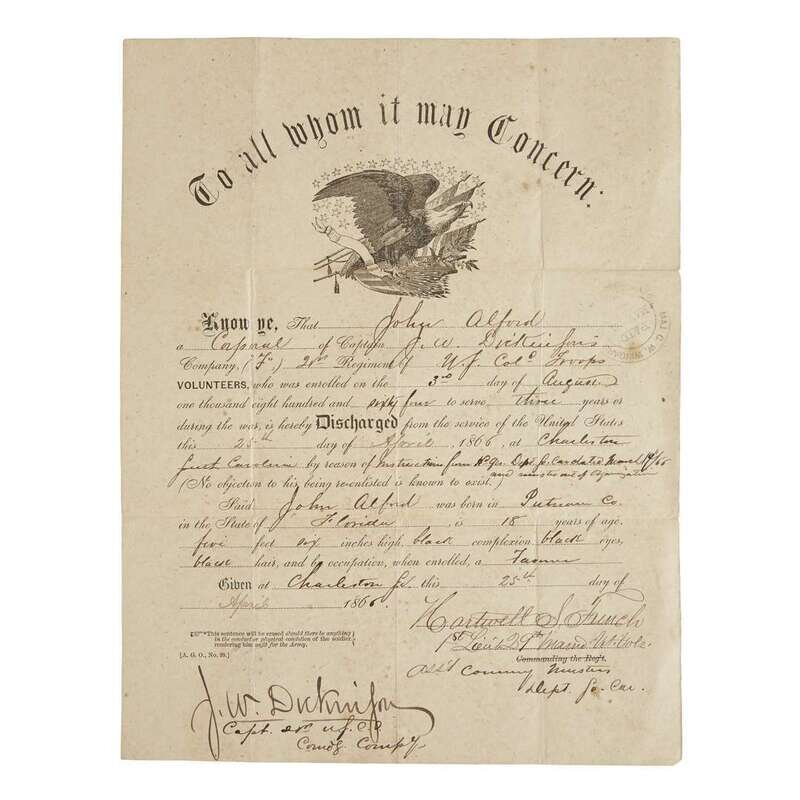 To all whom it may Concern:
Know ye, That John Alford
a Corporal of Captain J. W. Dickinson's
Company, ("F") Regiment of U.S. Cold Troops
VOLUNTEERS, who was enrolled on the 3rd day of August
one thousand eight hundred and sixty four to serve three years or
during the war, is hereby Discharged from the service of the United States
this 25th day of April, 1866, at Charleston
South Carolina by reason of Instructions from Hd Qrs Dept So. Car dated March 14/66
and muster out of
(No objection to his being re-enlisted is known to exist.)
Said John Alford was born in Putnam Co.
in the State of Florida, is 18 years of age,
five feet six inches high, black complexion, black eyes,
black hair, and by occupation, when enrolled, a Farmer
Given at Charleston S.C. this 25th day of
April 1866.
Hartwell S. French
1st Lieut 29th Maine Vet. Vols.
Commanding the Reg't.
Ass't Commy Musters
Dept. So. Car.
This sentence will be erased should there be anything
in the conduct or physical condition of the soldier
rendering him unfit for the Army.
[A. G. O., No. 99.]
J. W. Dickinson
Capt. U.S.C.
Comdg. Compy